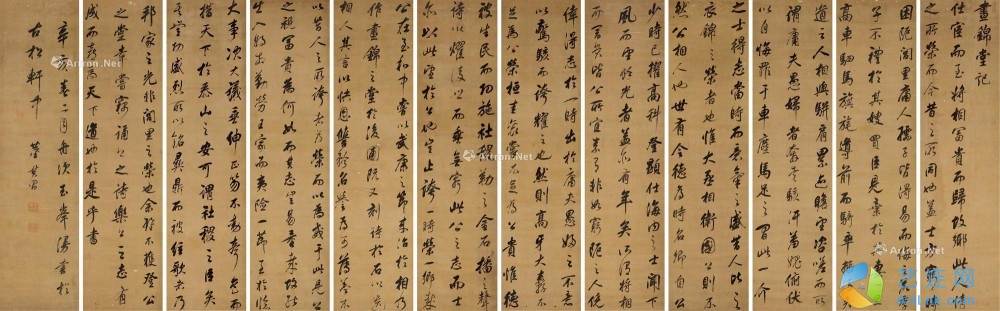 晝錦堂記
仕宦而至將相富貴而歸故鄉此人情
之所榮而今昔之所同也蓋士方窮時
困阨閭里庸人孺子皆得易而侮之若季
子不禮於其嫂買臣見棄於其妻一旦
高車駟馬旗旄導前而騎卒擁後夾
道之人相與駢肩累迹瞻望咨嗟而所
謂庸夫愚婦者奔走駭汗羞愧俯伏
以自悔罪于車塵馬足之間此一介
之士得志當時而意氣之盛昔人比之
衣錦之榮者也惟大丞相衛國公則不
然公相人也世有令德為時名卿自公
少時已擢高科登顯仕海內之士聞下
風而望餘光者蓋亦有年矣所謂將相
而富貴皆公所宜素有非如窮阨之人僥
倖得志於一時出於庸夫愚婦之不意
以驚駭而誇耀之也然則高牙大纛不
足為公榮桓圭袞冕不足為公貴惟德
被生民而功施社稷勒之金石播之聲
詩以耀後世而垂無窮此公之志而士
亦以此望於公也豈止誇一時榮一鄉哉
公在至和中嘗以武康之節來治於相乃
作晝錦之堂于後圃既又刻詩於石以遺
相人其言以快恩讎矜名譽為可薄蓋不
以昔人之所誇者為榮而以為戒于此見公
之視富貴為何如而其志豈易量哉故能
出入將相勤勞王家而夷險一節至於臨
大事決大議垂紳正笏不動聲色而
措天下於泰山之安可謂社稷之臣矣
其豐功盛烈所以銘彝鼎而被絃歌者乃
邦家之光非閭里之榮也余雖不獲登公
之堂幸嘗竊誦公之詩樂公之志有
成而喜為天下道也於是乎書
辛亥春二月舟次玉峯書於
古松軒中 董其昌
Artron.Net
Artron.Net
Artron.Net
艺珠网